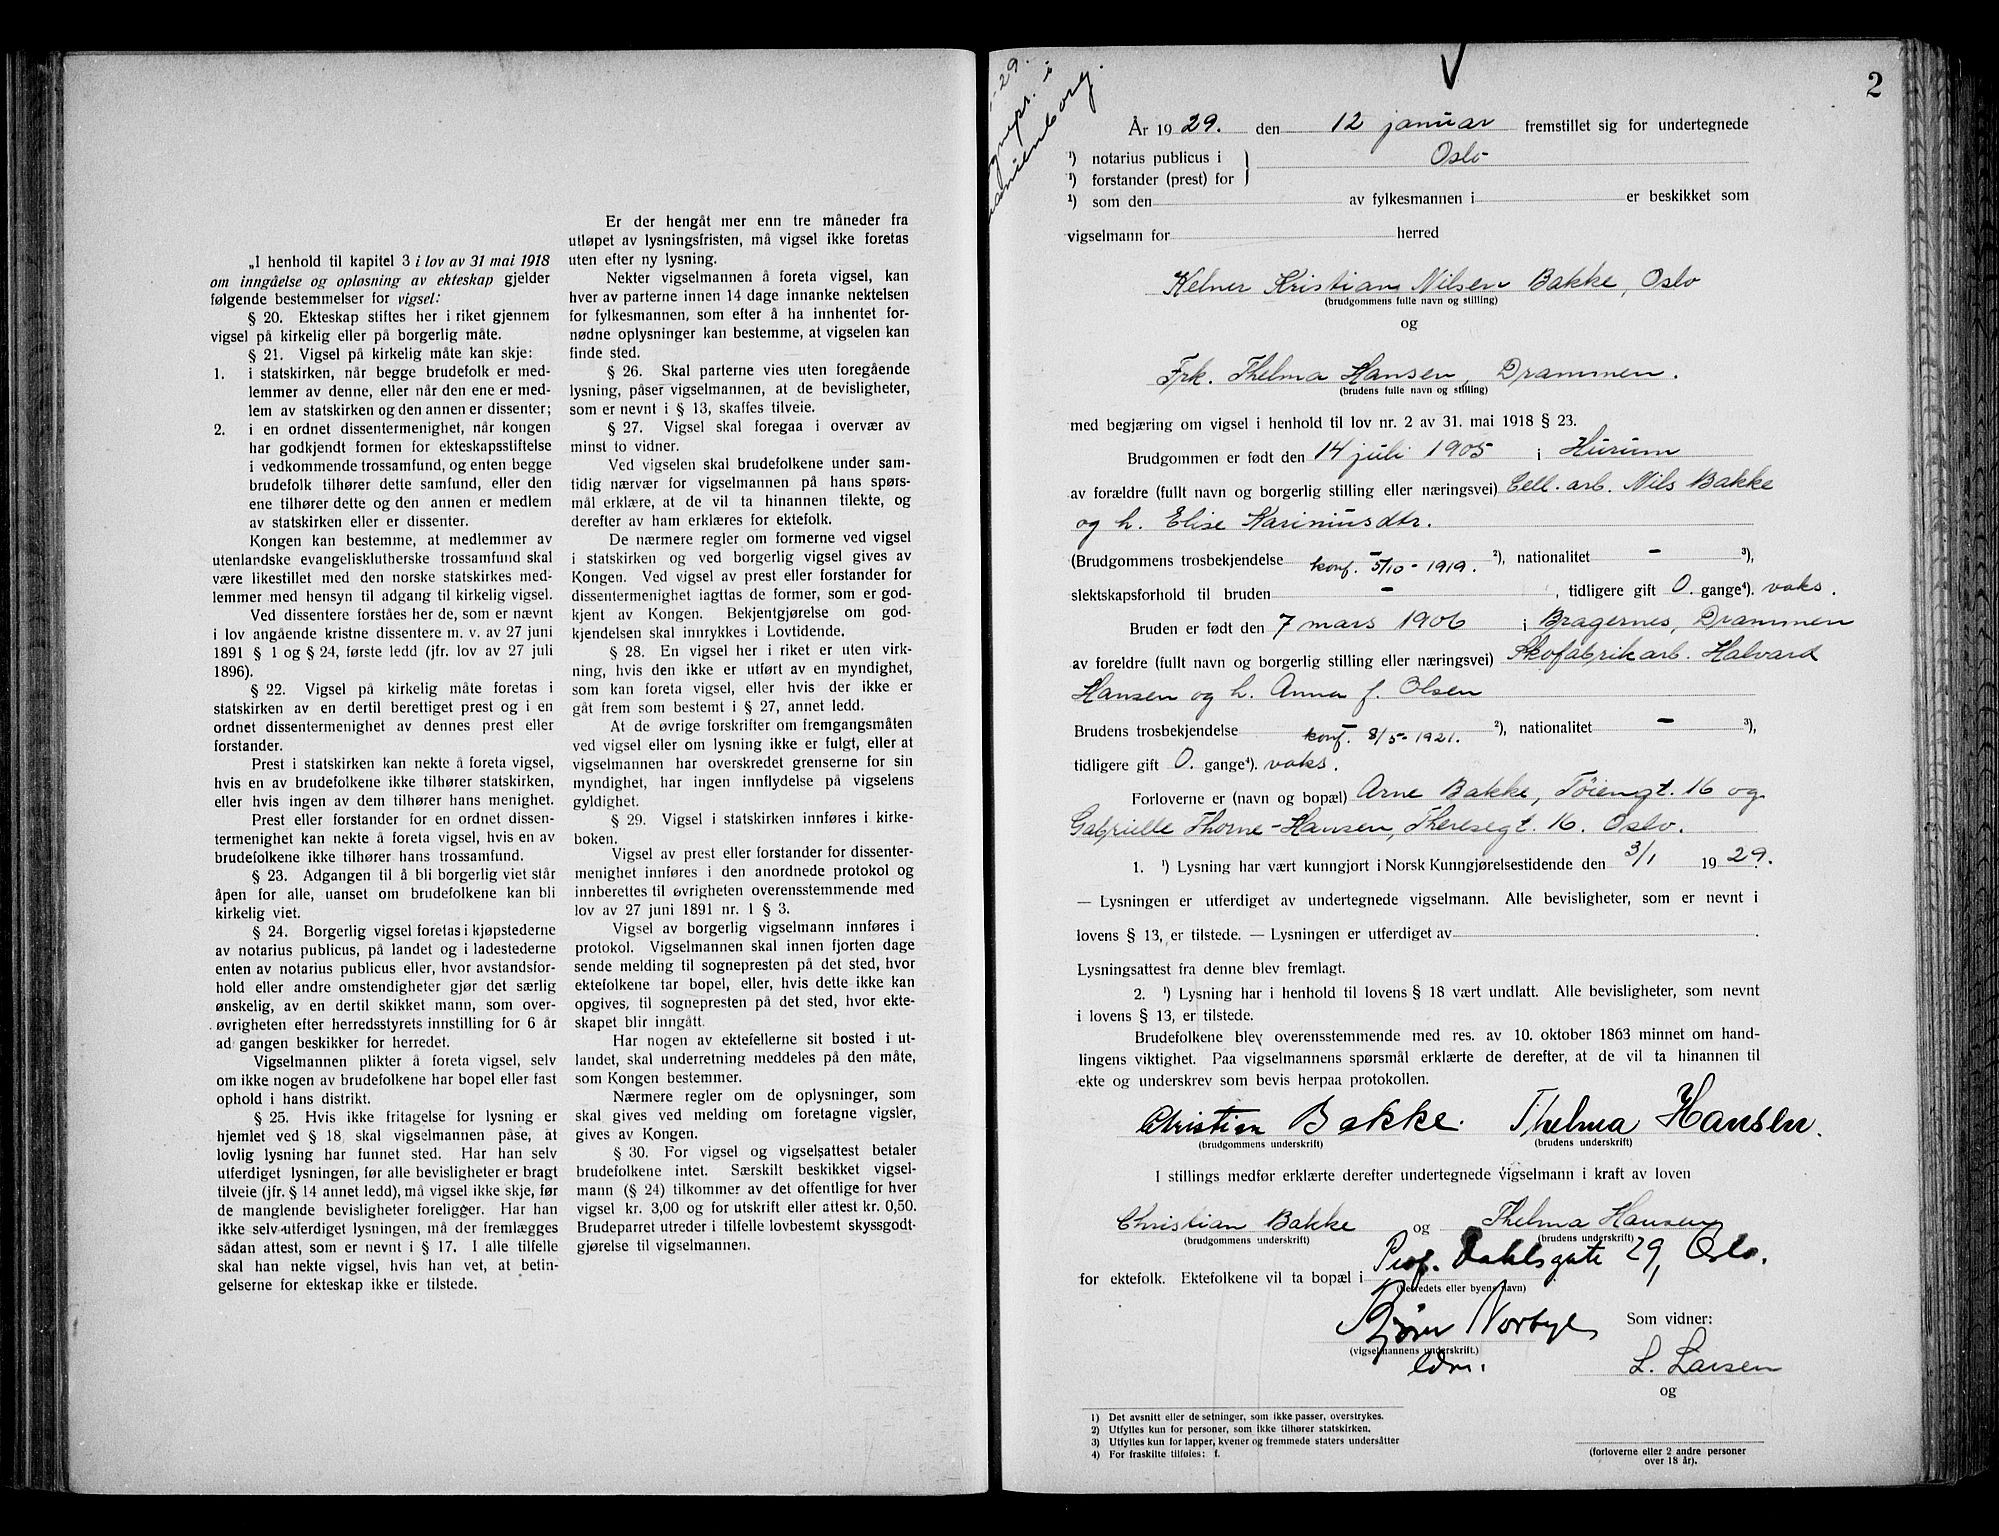 „I henhold til kapitel 3 i lov av 31 mai 1918
om inngåelse og opløsning av ekteskap gjelder
følgende bestemmelser for vigsel:
§ 20. Ekteskap stiftes her i riket gjennem
vigsel på kirkelig eller på borgerlig måte.
§ 21. Vigsel på kirkelig måte kan skje:
1. i statskirken, når begge brudefolk er med-
lemmer av denne, eller når den ene er med-
lem av statskirken og den annen er dissenter;
2. i en ordnet dissentermenighet, når kongen
har godkjendt formen for ekteskapsstiftelse
i vedkommende trossamfund, og enten begge
brudefolk tilhører dette samfund, eller den
ene tilhører dette og den annen er medlem
av statskirken eller er dissenter.
Kongen kan bestemme, at medlemmer av
utenlandske evangelisklutherske trossamfund skal
være likestillet med den norske statskirkes med-
lemmer med hensyn til adgang til kirkelig vigsel.
Ved dissentere forståes her de, som er nævnt
i lov angående kristne dissentere m. v. av 27 juni
1891 § 1 og § 24, første ledd (jfr. lov av 27 juli
1896).
§ 22. Vigsel på kirkelig måte foretas i
statskirken av en dertil berettiget prest og i en
ordnet dissentermenighet av dennes prest eller
forstander.
Prest i statskirken kan nekte å foreta vigsel,
hvis en av brudefolkene ikke tilhører statskirken,
eller hvis ingen av dem tilhører hans menighet.
Prest eller forstander for en ordnet dissen-
termenighet kan nekte å foreta vigsel, hvis en av
brudefolkene ikke tilhører hans trossamfund.
§ 23. Adgangen til å bli borgerlig viet står
åpen for alle, uanset om brudefolkene kan bli
kirkelig viet.
§ 24. Borgerlig vigsel foretas i kjøpstederne
av notarius publicus, på landet og i ladestederne
enten av notarius publicus eller, hvor avstandsfor-
hold eller andre omstendigheter gjør det særlig
ønskelig, av en dertil skikket mann, som over-
øvrigheten efter herredsstyrets innstilling for 6 år
ad gangen beskikker for herredet.
Vigselmannen plikter å foreta vigsel, selv
om ikke nogen av brudefolkene har bopel eller fast
ophold i hans distrikt.
§ 25. Hvis ikke fritagelse for lysning er
hjemlet ved § 18, skal vigselmannen påse, at
lovlig lysning har funnet sted. Har han selv
utferdiget lysningen, før alle bevisligheter er bragt
tilveie (jfr. § 14 annet ledd), må vigsel ikke skje, før
de manglende bevisligheter foreligger. Har han
ikke selv utferdiget lysningen, må der fremlægges
sådan attest, som er nevnt i § 17. I alle tilfelle
skal han nekte vigsel, hvis han vet, at betin-
gelserne for ekteskap ikke er tilstede.
Er der hengåt mer enn tre måneder fra
utløpet av lysningsfristen, må vigsel ikke foretas
uten efter ny lysning.
Nekter vigselmannen å foreta vigsel, kan
hver av parterne innen 14 dage innanke nektelsen
for fylkesmannen, som efter å ha innhentet for-
nødne oplysninger kan bestemme, at vigselen kan
finde sted.
§ 26. Skal parterne vies uten foregående
lysning, påser vigselmannen, at de bevisligheter,
som er nevnt i § 13, skaffes tilveie.
§ 27. Vigsel skal foregaa i overvær av
minst to vidner.
Ved vigselen skal brudefolkene under sam-
tidig nærvær for vigselmannen på hans spørs-
mål erklære, at de vil ta hinannen tilekte, og
derefter av ham erklæres for ektefolk.
De nærmere regler om formerne ved vigsel
i statskirken og ved borgerlig vigsel gives av
Kongen. Ved vigsel av prest eller forstander for
dissentermenighet iagttas de former, som er god-
kjent av Kongen. Bekjentgjørelse om god-
kjendelsen skal innrykkes i Lovtidende.
§ 28. En vigsel her i riket er uten virk-
ning, hvis den ikke er utført av en myndighet,
som kan foreta vigsel, eller hvis der ikke er
gåt frem som bestemt i § 27, annet ledd.
At de øvrige forskrifter om fremgangsmåten
ved vigsel eller om lysning ikke er fulgt, eller at
vigselmannen har overskredet grenserne for sin
myndighet, har ingen innflydelse på vigselens
gyldighet.
§ 29. Vigsel i statskirken innføres i kirke-
boken.
Vigsel av prest eller forstander for dissenter-
menighet innføres i den anordnede protokol og
innberettes til øvrigheten overensstemmende med
lov av 27 juni 1891 nr. 1 § 3.
Vigsel av borgerlig vigselmann innføres i
protokol. Vigselmannen skal innen fjorten dage
sende melding til sognepresten på det sted, hvor
ektefolkene tar bopel, eller, hvis dette ikke kan
opgives, til sognepresten på det sted, hvor ekte-
skapet blir inngått.
Har nogen av ektefellerne sit bosted i ut-
landet, skal underretning meddeles på den måte,
som Kongen bestemmer.
Nærmere regler om de oplysninger, som
skal gives ved melding om foretagne vigsler,
gives av Kongen.
§ 30. For vigsel og vigselsattest betaler
brudefolkene intet. Særskilt beskikket vigsel-
mann (§ 24) tilkommer av det offentlige for hver
vigsel kr. 3,00 og for utskrift eller attest kr. 0,50.
Brudeparret utreder i tilfelle lovbestemt skyssgodt-
gjørelse til vigselmannen.
2
-29.
i
År 1929. den 12 januar fremstillet sig for undertegnede
¹) notarius publicus i } Oslo
¹) forstander (prest) for
¹) som den av fylkesmannen i er beskikket som
vigselmann for herred
Kelner Kristian Nilsen Bakke, Oslo
(brudgommens fulle navn og stilling)
og
Frk. Thelma Hansen, Drammen.
(brudens fulle navn og stilling)
med begjæring om vigsel i henhold til lov nr. 2 av 31. mai 1918 § 23.
Brudgommen er født den 14 juli 1905 i Hurum
av forældre (fullt navn og borgerlig stilling eller næringsvei) Cell. arb. Nils Bakke
og h. Elise Kariniusdtr.
(Brudgommens trosbekjendelse konf. 5/10 - 1919. ²), nationalitet - ³),
slektskapsforhold til bruden - , tidligere gift 0. gange⁴). vaks.
Bruden er født den 7 mars 1906 i Bragernes, Drammen
av foreldre (fullt navn og borgerlig stilling eller næringsvei) Skofabrikarb. Halvard
Hansen og h. Anna f. Olsen
Brudens trosbekjendelse konf. 8/5 - 1921. ²), nationalitet - ³),
tidligere gift 0. gange⁴). vaks.
Forloverne er (navn og bopæl) Arne Bakke, Töiengt. 16 og
Gabrielle Thorne-Hansen, Theresegt. 16. Oslo.
1. ¹) Lysning har vært kunngjort i Norsk Kunngjørelsestidende den 3/1 1929.
— Lysningen er utferdiget av undertegnede vigselmann. Alle bevisligheter, som er nevnt i
lovens § 13, er tilstede. — Lysningen er utferdiget av .
Lysningsattest fra denne blev fremlagt.
2. ¹) Lysning har i henhold til lovens § 18 vært undlatt. Alle bevisligheter, som nevnt
i lovens § 13, er tilstede.
Brudefolkene blev overensstemmende med res. av 10. oktober 1863 minnet om hand-
lingens viktighet. Paa vigselmannens spørsmål erklærte de derefter, at de vil ta hinannen til
ekte og underskrev som bevis herpaa protokollen.
Christian Bakke. Thelma Hansen.
(brudgommens underskrift) (brudens underskrift)
I stillings medfør erklærte derefter undertegnede vigselmann i kraft av loven
Christian Bakke og Thelma Hansen
(brudgommens underskrift) (brudens underskrift)
for ektefolk. Ektefolkene vil ta bopæl i Prof. Dahlsgate 29, Oslo.
(herredets eller byens navn)
Bjørn Norbye Som vidner:
(vigselmannens underskrift.)
L. Larsen
og
1) Det avsnitt eller de setninger, som ikke passer, overstrykes.
2) Utfylles kun for personer, som ikke tilhører statskirken.
3) Utfylles kun for lapper, kvener og fremmede staters undersåtter
4) For fraskilte tilføies: f.
(forloverne eller 2 andre personer
over 18 år).